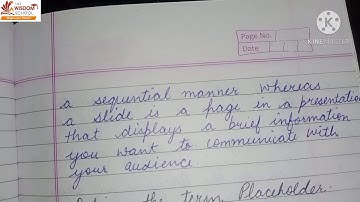 THE
WISDOM
SCHOOL
Page No.
Date
KINEMASTER
a sequential manner whereas
a slide is a page in a presentation
that displays a brief information
you want to communicate with
your audience
the term Placeholder.